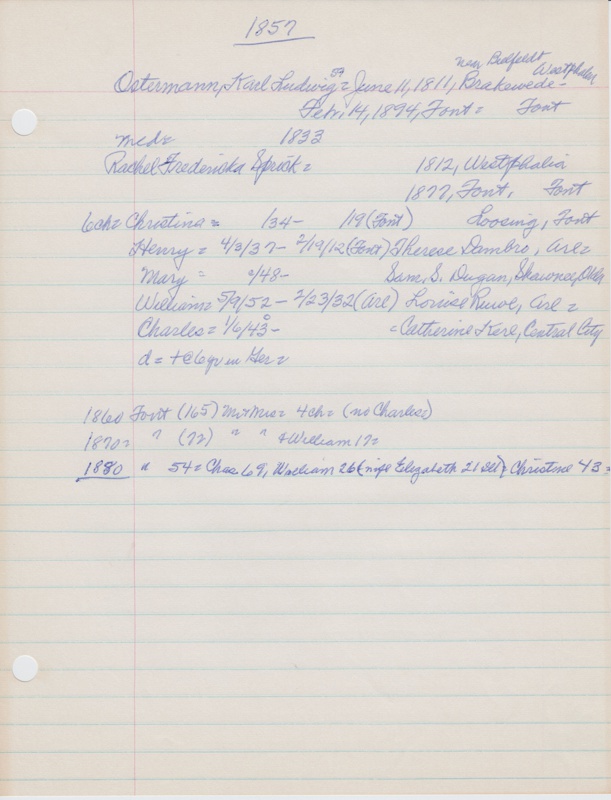 1857
near Bielfeldt Westphalen
Ostermann, Karl Ludwig 57 = June 11, 1811, Brakewede -
Feb. 14, 1894, Font = Font
med = 1833
Rachel Fredericka Sprick = 1812, Westphalia
1877, Font, Font
6ch = Christina = /34 - /19 (Font) Loosing, Font
Henry = 4/3/37 - 2/19/12 (Font) Therese Dambro, Arl =
Mary = 2/48 - Sam, S. Dugan, Shawnee, Okla
William = 5/9/52 - 2/23/32 (Arl) Louise Ruwe, Arl =
Charles = 1/6/43 - = Catherine Kerl, Central City
d = + @ 6yr in Ger =
1860 Font (165) Mr + Mrs = 4ch = (no Charles)
1870 = " (72) " " + William 17 =
1880 " 54 = Chas 69, William 26 (wife Elizabeth 21 Ill) + Christine 43 =